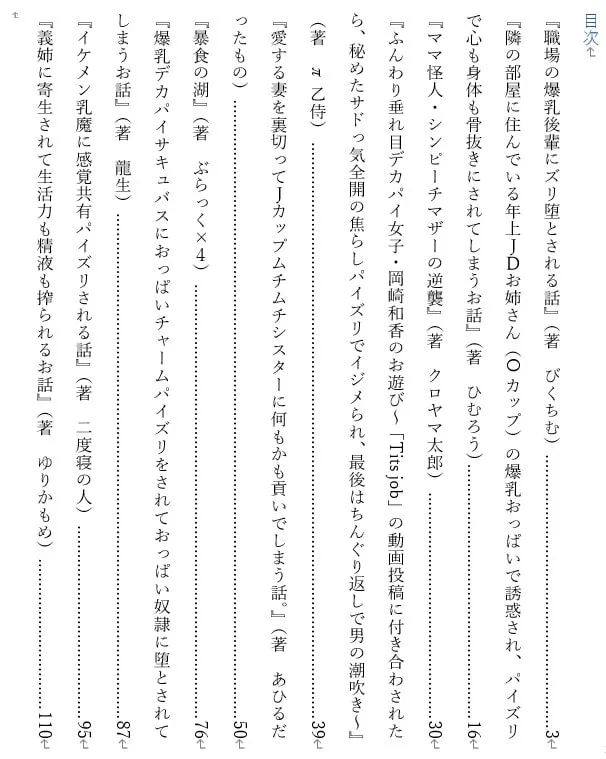 目次
『職場の爆乳後輩にズリ堕とされる話』（著　びくちむ）……………………3
『隣の部屋に住んでいる年上JDお姉さん（Oカップ）の爆乳おっぱいで誘惑され、パイズリ
で心も身体も骨抜きにされてしまうお話』（著　ひむろう）……………………16
『ママ怪人・シンピーチマザーの逆襲』（著　クロヤマ太郎）……………………30
『ふんわり垂れ目デカパイ女子・岡崎和香のお遊び～「Tits job」の動画投稿に付き合わされた
ら、秘めたサドっ気全開の焦らしパイズリでイジメられ、最後はちんぐり返しで男の潮吹き～』
（著　π乙侍）……………………39
『愛する妻を裏切ってJカップムチムチシスターに何もかも貢いでしまう話。』（著　あひるだ
ったもの）……………………50
『暴食の湖』（著　ぶらっく×4）……………………76
『爆乳デカパイサキュバスにおっぱいチャームパイズリをされておっぱい奴隷に堕とされて
しまうお話』（著　龍生）……………………87
『イケメン乳魔に感覚共有パイズリされる話』（著　二度寝の人）……………………95
『義姉に寄生されて生活力も精液も搾られるお話』（著　ゆりかもめ）……………………110